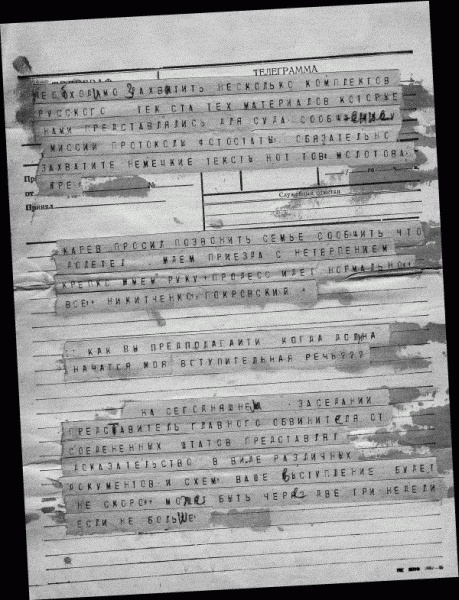 ТЕЛЕГРАММА
НЕОБХОДИМО ЗАХВАТИТЬ НЕСКОЛЬКО КОМПЛЕКТОВ
РУССКОГО ТЕКСТА ТЕХ МАТЕРИАЛОВ КОТОРЫЕ
НАМИ ПРЕДСТАВЛЯЛИСЬ ДЛЯ СУДА СООБЩЕНИЕ
МИССИИ ПРОТОКОЛЫ ФОТОСТАТЫ ОБЯЗАТЕЛЬНО
ЗАХВАТИТЕ НЕМЕЦКИЕ ТЕКСТЫ НОТ ТОВ МОЛОТОВА
от
№
Принял
Служебные отметки
КАРЕВ ПРОСИЛ ПОЗВОНИТЬ СЕМЬЕ СООБЩИТЬ ЧТО
ДОЛЕТЕЛ ЖДЕМ ПРИЕЗДА С НЕТЕРПЕНИЕМ
КРЕПКО ЖМЕМ РУКУ ПРОЦЕСС ИДЕТ НОРМАЛЬНО
ВСЕ НИКИТЧЕНКО ПОКРОВСКИЙ
КАК ВЫ ПРЕДПОЛАГАЙТИ КОГДА ДОЛЖНА
НАЧАТСЯ МОЯ ВСТУПИТЕЛЬНАЯ РЕЧЬ???
НА СЕГОДНЯШНЕМ ЗАСЕДАНИИ
ПРЕДСТАВИТЕЛЬ ГЛАВНОГО ОБВИНИТЕЛЯ ОТ
СОЕДЕНЕННЫХ ШТАТОВ ПРЕДСТАВЛЯЛ
ДОКАЗАТЕЛЬСТВО В ВИДЕ РАЗЛИЧНЫХ
ДОКУМЕНТОВ И СХЕМ ВАШЕ ВЫСТУПЛЕНИЕ БУДЕТ
НЕ СКОРО МОЖЕ БЫТЬ ЧЕРЕЗ ДВЕ ТРИ НЕДЕЛИ
ЕСЛИ НЕ БОЛЬШЕ